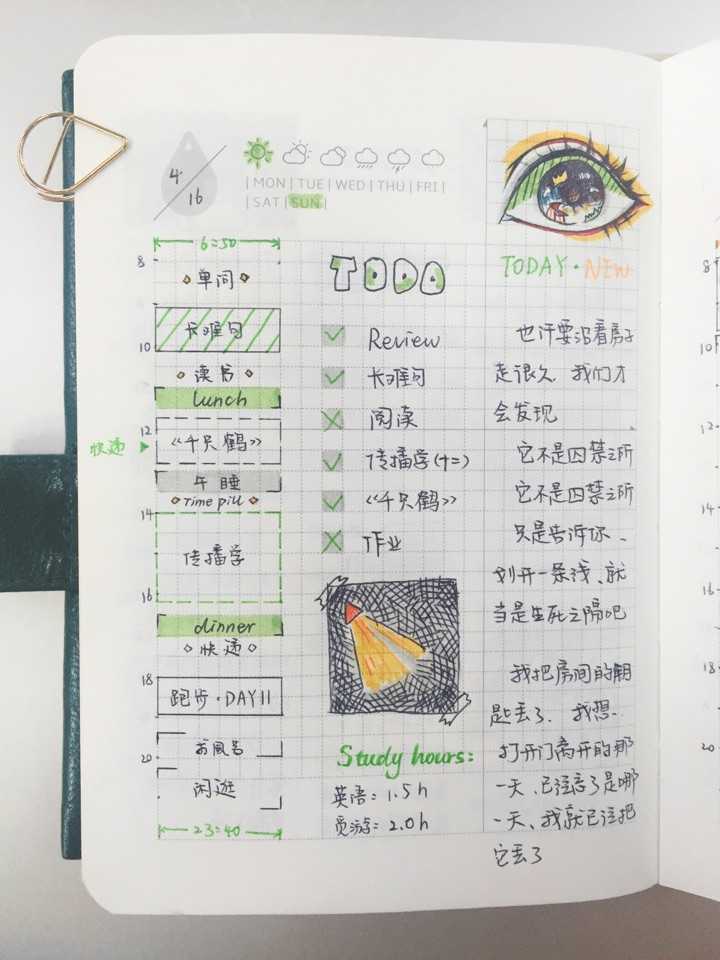 4/16
| MON | TUE | WED | THU | FRI |
| SAT | SUN |
6:50
8
单词
长难句
10
读书
lunch
12
快递
《千只鹤》
午睡
Time pill
14
传播学
16
dinner
快递
18
跑步·DAY11
お風呂
20
闲逛
23:40
TODO
Review
长难句
阅读
传播学(十二)
《千只鹤》
作业
Study hours:
英语: 1.5h
觅游: 2.0h
TODAY·NEW
也许要沿着房子
走很久、我们才
会发现
它不是囚禁之所
它不是囚禁之所
只是告诉你、
划开一条线、就
当是生死之隔吧
我把房间的钥
匙丢了、我想..
打开门离开的那
一天、已经忘了是哪
一天、我就已经把
它丢了
8
10
12
14
16
18
20